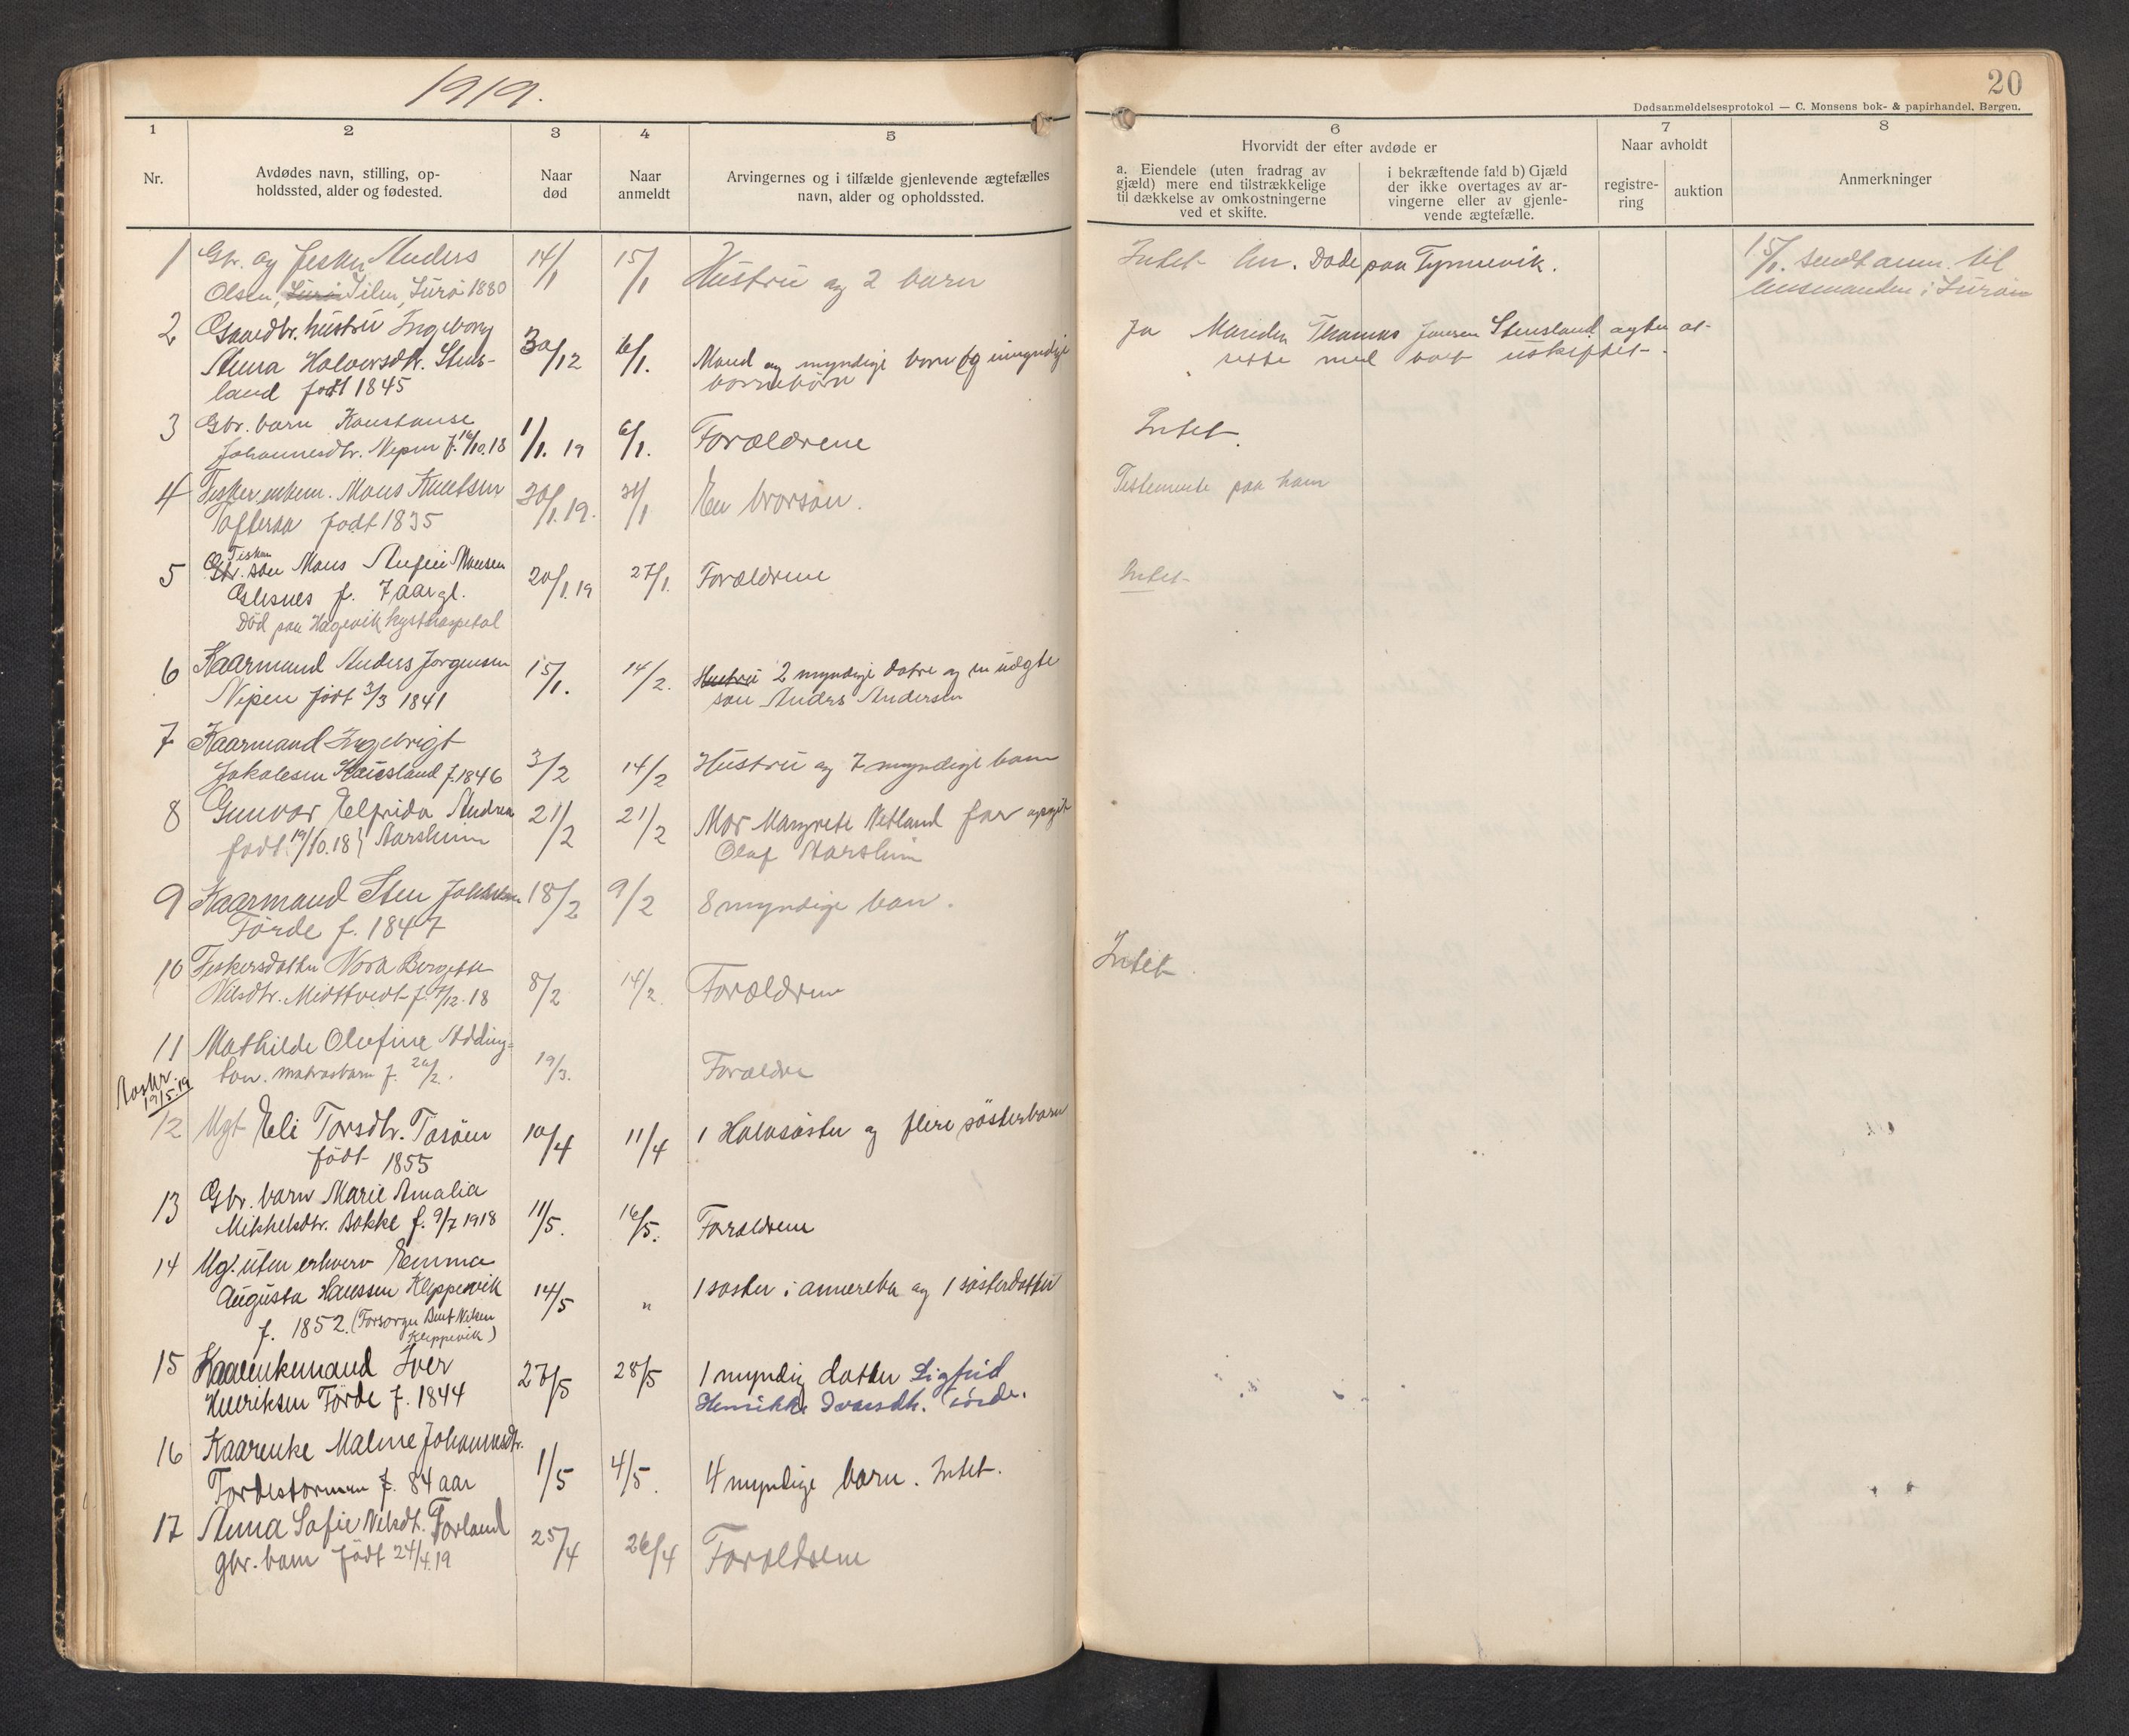 1919.
20
Dødsanmeldelsesprotokol — C. Monsens bok- & papirhandel, Bergen.
1
2
3
4
5
6
7
8
Nr.
Avdødes navn, stilling, op-
holdssted, alder og fødested.
Naar
død
Naar
anmeldt
Arvingernes og i tilfælde gjenlevende ægtefælles
navn, alder og opholdssted.
Hvorvidt der efter avdøde er
a. Eiendele (uten fradrag av
gjæld) mere end tilstrækkelige
til dækkelse av omkostningerne
ved et skifte.
i bekræftende fald b) Gjæld
der ikke overtages av ar-
vingerne eller av gjenle-
vende ægtefælle.
Naar avholdt
registre-
ring
auktion
Anmerkninger
1 Gbr. og fisker Anders 14/1 15/1 Hustru og 2 barn Intet Døde paa Tynnevik. 15/1. sendt anm. til
Olsen, 1880 lensmanden i
2 Gaardbr. hustru Ingeborg 30/12 6/1. Mand og myndige børn og umyndige Ja Manden Thomas Jansen Stensland agter at
Anna Halvorsdtr. Stens- børnebørn sitte med boet uskiftet.
land født 1845
3 Gbr. barn Konstanse 1/1. 19 6/1. Forældrene Intet.
Johannesdtr. Nepen f. 16/10.18
4 Fisker enkem. Mons Knutsen 30/1.19. 31/1 En brorsøn. Testemente paa ham
født 1835
5 Fisker
Gbr. søn Mons Monsen 20/1.19 27/1. Forældrene Intet
Glesnes f. 7 aar gl.
Død paa Hagevik kysthospital
6 Kaarmand Anders Jørgensen 15/1. 14/2. Hustru 2 myndige døtre og en
Nepen født 3/3 1841 søn Anders Andersen
7 Kaarmand Ingebrigt 3/2 14/2 Hustru og 7 myndige barn
Jakobsen Haugsland f. 1846
8 Gunvor Elfrida Andrea 21/2 21/2 Mor Margrete Vetland far opgit
født 19/10.18 } Aarsheim Olaf Aarsheim
9 Kaarmand Sten Johannesen 18/2 9/2 8 myndige barn.
Førde f. 1847
10 Fiskersdatter Nora Bergitte 8/2 14/2. Forældrene Intet
Nilsdtr. Midttveit f. 7/12.18
11 Mathilde Olufine Adding- 19/3. Forældre
ton. matrosbarn f. 20/2.
19/5.19
12 Ugt Eli Torsdtr. Tøsøen 10/4 11/4 1 Halvsøster og flere søsterbarn
født 1855
13 Gbr. barn Marie Amalia 11/5. 16/5. Forældrene
Mikkelsdtr. Bakke f. 9/7 1918
14 Ug. uten erhverv Emma 14/5 " 1 søster i amereka og 1 søsterdatter
Augusta Hanssen Kleppevik
f. 1852. (Forsørger Bent Nilsen
Kleppevik)
15 Kaarenkemand Iver 27/5 28/5 1 myndig datter Sigfrid
Henriksen Førde f. 1844 Henrikke Iversdtr. Førde.
16 Kaarenke Malene Johannesdtr. 1/5 4/5. 4 myndige barn. Intet.
f. 84 aar
17 Anna Sofie Nilsdt. Førland 25/4 26/4 Forældrene
gbr. barn født 24/4.19